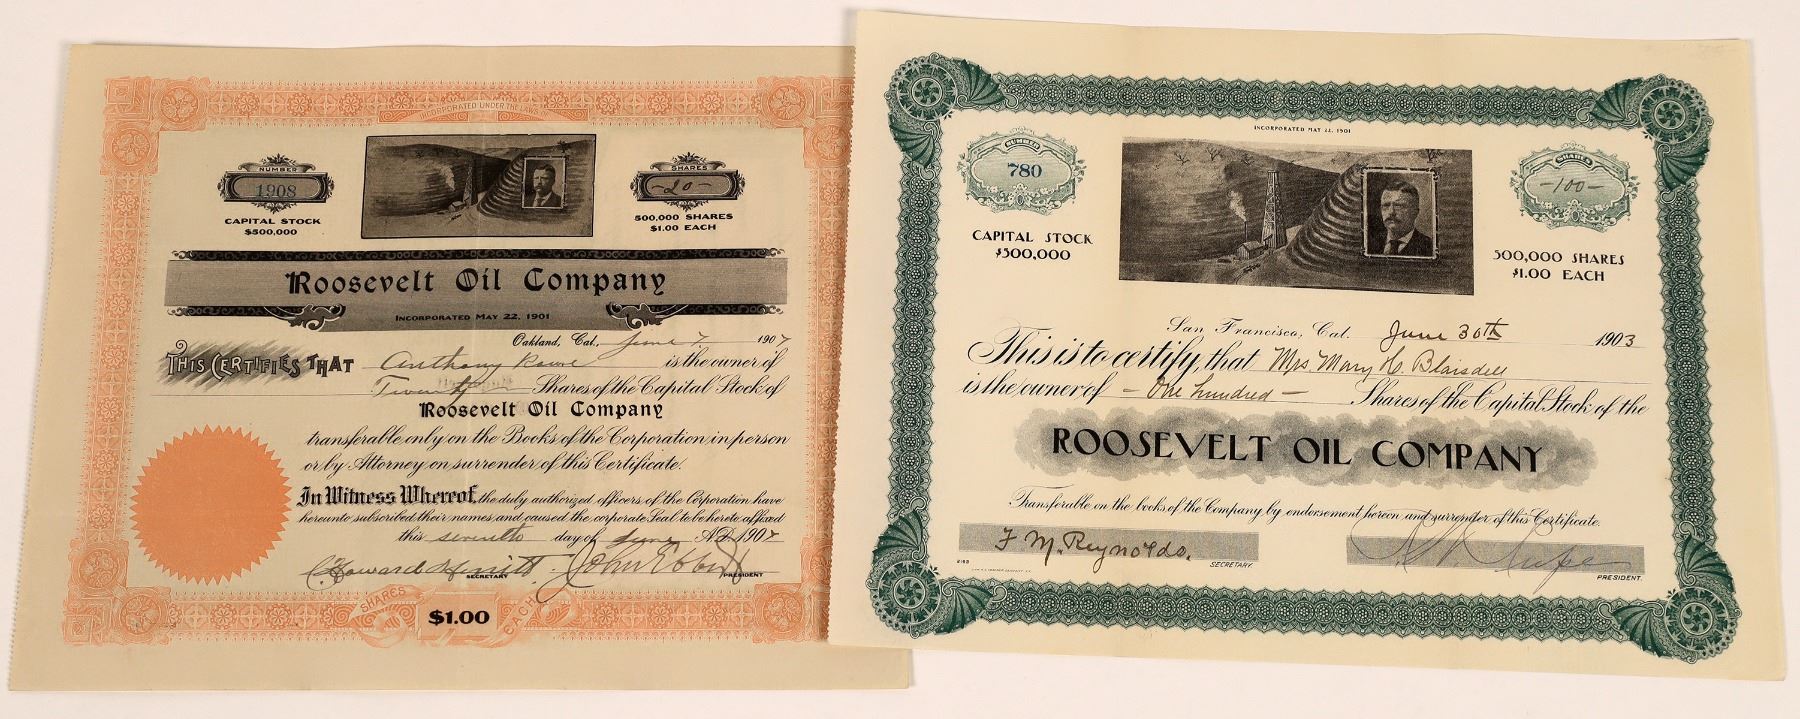 INCORPORATED UNDER THE LAWS
NUMBER
1908
CAPITAL STOCK
$500,000
SHARES
-20-
500,000 SHARES
$1.00 EACH
Roosevelt Oil Company
INCORPORATED MAY 22, 1901
Oakland, Cal., June 7 1907
THIS CERTIFIES THAT Anthony is the owner of
Twenty Shares of the Capital Stock of
Roosevelt Oil Company
transferable only on the Books of the Corporation in person
or by Attorney on surrender of this Certificate.
In Witness Whereof, the duly authorized officers of the Corporation have
hereunto subscribed their names and caused the corporate Seal to be hereto affixed
this seventh day of June A.D. 1907
SECRETARY PRESIDENT
SHARES $1.00 EACH
INCORPORATED MAY 22, 1901
NUMBER
780
CAPITAL STOCK
$500,000
SHARES
-100-
500,000 SHARES
$1.00 EACH
San Francisco, Cal. June 30th 1903
This is to certify, that Mrs. Mary H. Blaisdell
is the owner of - One hundred - Shares of the Capital Stock of the
ROOSEVELT OIL COMPANY
Transferable on the books of the Company by endorsement hereon and surrender of this Certificate.
F M. Reynolds.
SECRETARY.
PRESIDENT.